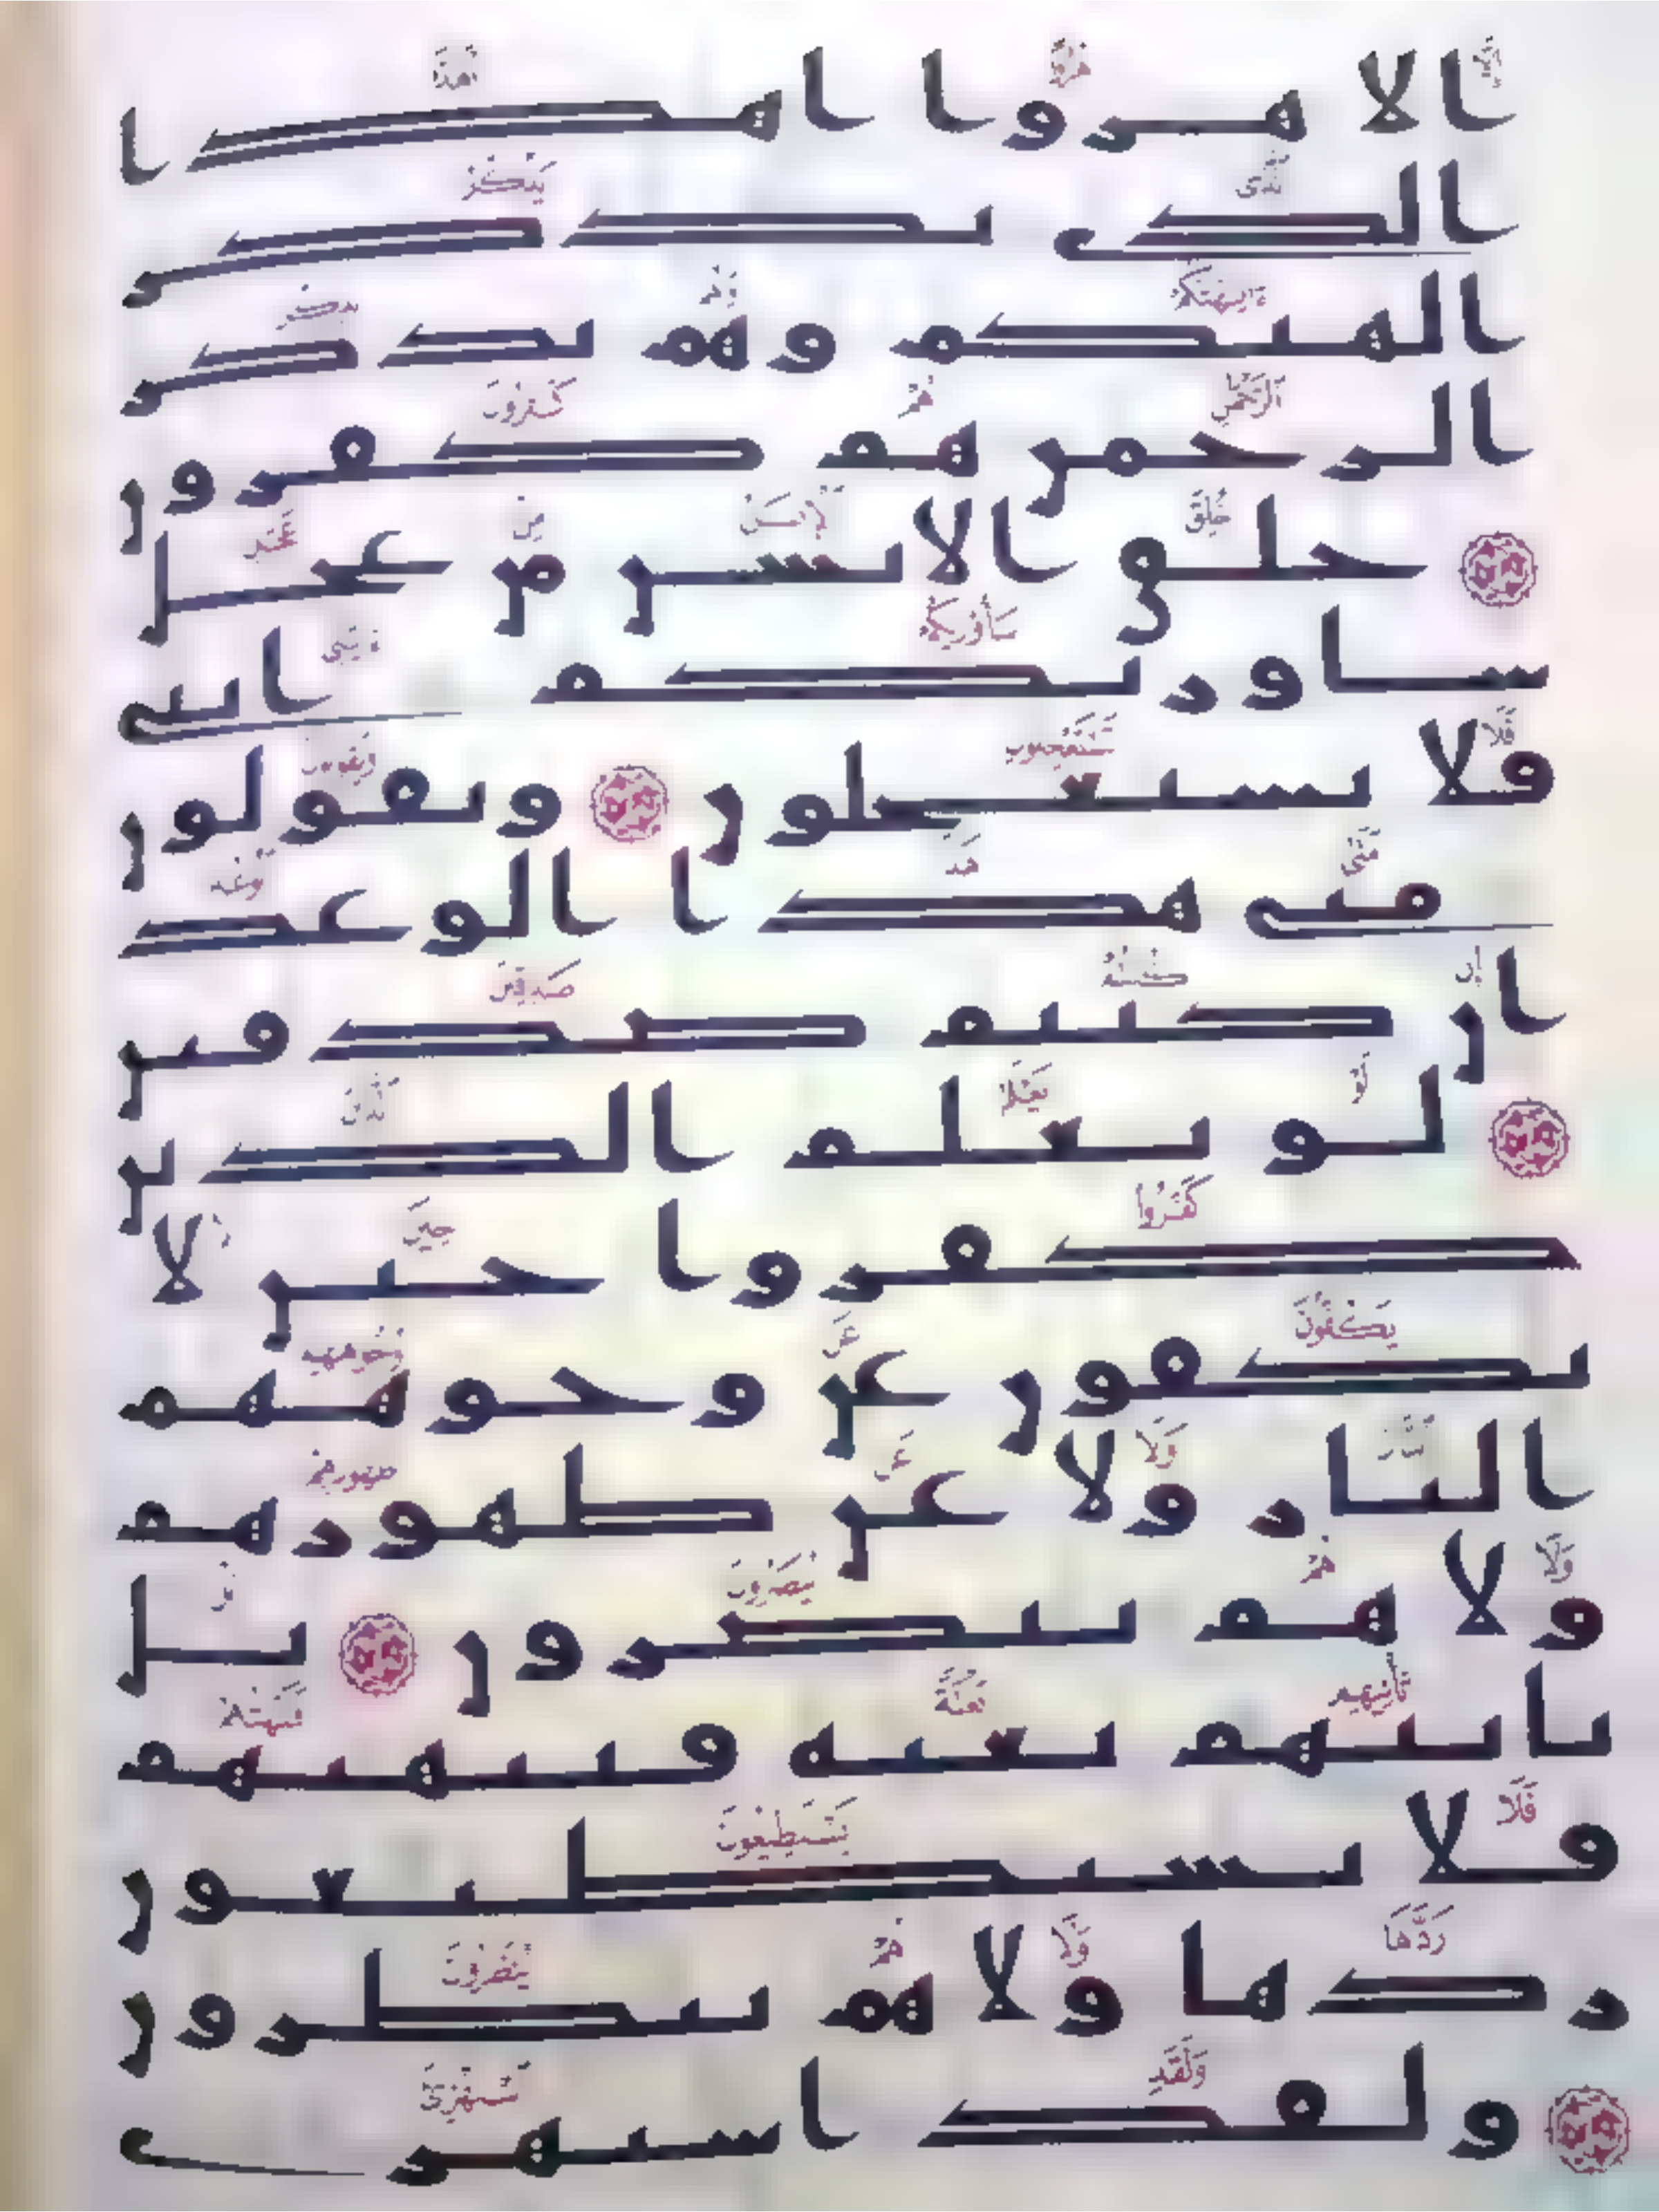 الا هزوا اهذا
الذي يذكر
الهتكم وهم بذكر
الرحمن هم كفرون
خلق الانسن من عجل
ساوريكم ايتي
فلا تستعجلون ويقولون
متى هذا الوعد
ان كنتم صدقين
لو يعلم الذين
كفروا حين لا
يكفون عن وجوههم
النار ولا عن ظهورهم
ولا هم ينصرون بل
تاتيهم بغتة فتبهتهم
فلا يستطيعون
ردها ولا هم ينظرون
ولقد استهزي